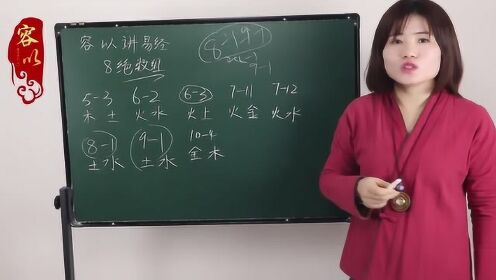 容以
容以讲易经
8绝数组
5-3 6-2 6-3 7-11 7-12
木土 火水 火土 火金 火水
8-1 9-1 10-4
土水 土水 金木
9-1